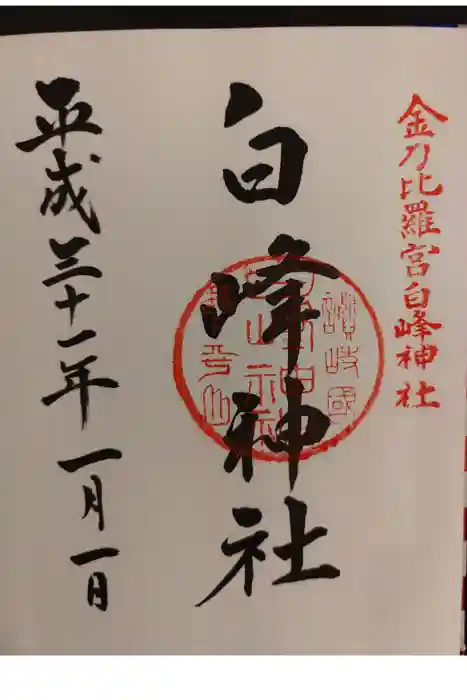 金刀比羅宮白峰神社
白峰神社
讃岐國
平成三十一年一月一日